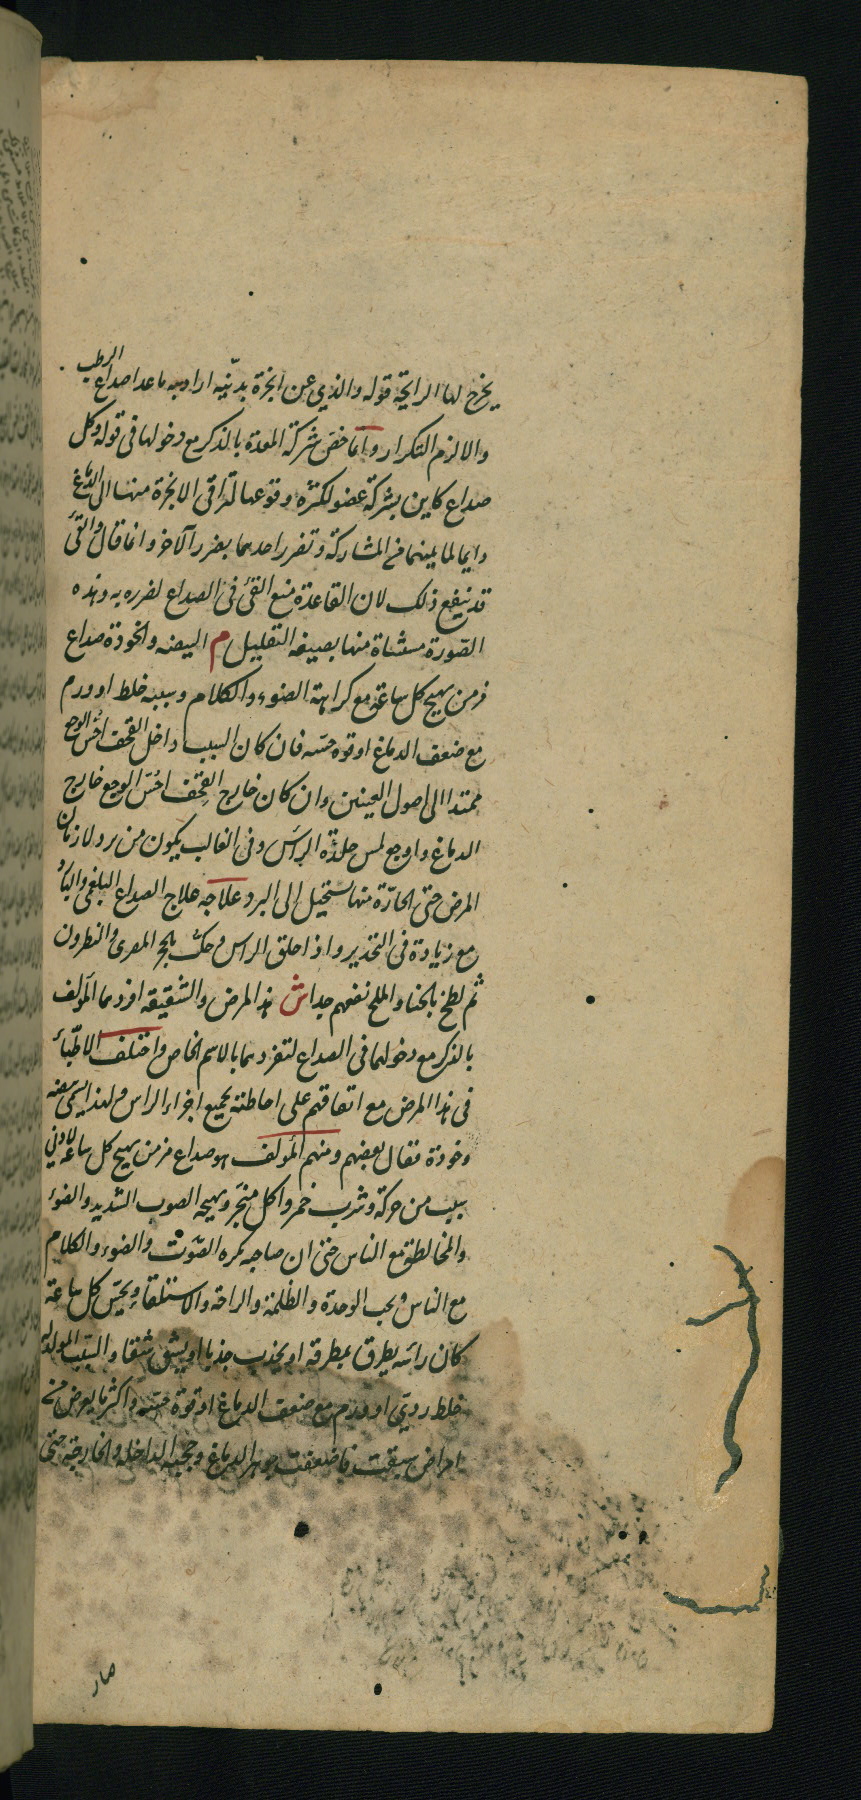 يخرج لها الرايحة قوله والذي عن ابخرة بدنيه اراد به ماعدا صداع الرطب
والا لزم التكرار وانما خص شركة المعدة بالذكر مع دخولها فى قوله وكل
صداع كاين بشركة عضو لكثرة وقوعها لتراقى الابخرة منها الى الدماغ
دايما لما بينهما من المشاركة وتضرر احدهما بضرر الآخر وانما قال والقئ
قد ينفع ذلك لان القاعدة منع القئ فى الصداع لضرره به وهذه
الصورة مستثناة منها بصيغة التقليل م البيضه والخوذة صداع
مزمن يهيج كل ساعة مع كراهة الضوء والكلام وسببه خلط او ورم
مع ضعف الدماغ او قوه حسه فان كان السبب داخل القحف احس الوجع
ممتدا الى اصول العينين وان كان خارج القحف احس الوجع خارج
الدماغ واوجع لمس جلدة الراس وفى الغالب يكون من برد لازمان
المرض حتى الحارة منها تستحيل الى البرد علاجه علاج الصداع البلغمى والبارد
مع زيادة فى التخدير واذا حلق الراس وحك بالحجر المصرى والنطرون
ثم لطخ بالحنا والملح نفعهم جدا ش هذا المرض والشقيقه افردهما المؤلف
بالذكر مع دخولهما فى الصداع لتفردهما بالاسم الخاص واختلف الاطباء
فى هذا المرض مع اتفاقهم على احاطته بجميع اجزاء الراس ولهذا يسمى بيضه
وخوذة فقال بعضهم ومنهم المؤلف هو صداع مزمن يهيج كل ساعة لادنى
سبب من حركة وشرب خمر واكل مبخر ويهيجه الصوت الشديد والضوء
والمخالطة مع الناس حتى ان صاحبه يكره الصوت والضوء والكلام
مع الناس ويحب الوحدة والظلمة والراحة والاستلقاء ويحس كل ساعة
كان راسه يطرق بمطرقه او يجذب جذبا او يشق شقا والسبب المولد له
خلط ردئ او ورم مع ضعف الدماغ او قوة حسه واكثر ما يعرض من
امراض سبقت فاضعفت جوهر الدماغ وحجبه الداخله والخارجة حتى
صار